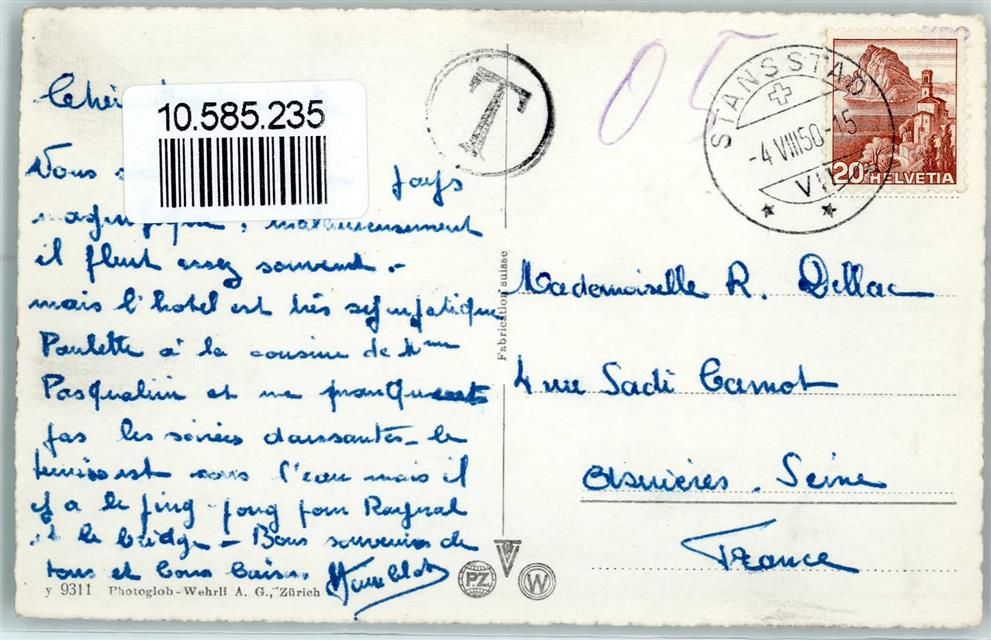 10.585.235
Vous pays
magnifique, malheureusement
il pleut assez souvent.-
mais l'hotel est très sympatique
Paulette a la cousine de Mme
Pasqualini et ne manquent
pas les soirées dansantes - le
tennis est sous l'eau mais il
y a le ping-pong pour Raynal
et le bridge - Bons souvenirs de
tous et bons baisers
y 9311 Photoglob-Wehrli A. G., Zürich
Fabrication suisse
PZ
W
T
05
STANSSTAD
-4.VIII.50.-15
20 HELVETIA
Mademoiselle R. Dellac
4 rue Sadi Carnot
Asnières. Seine
France